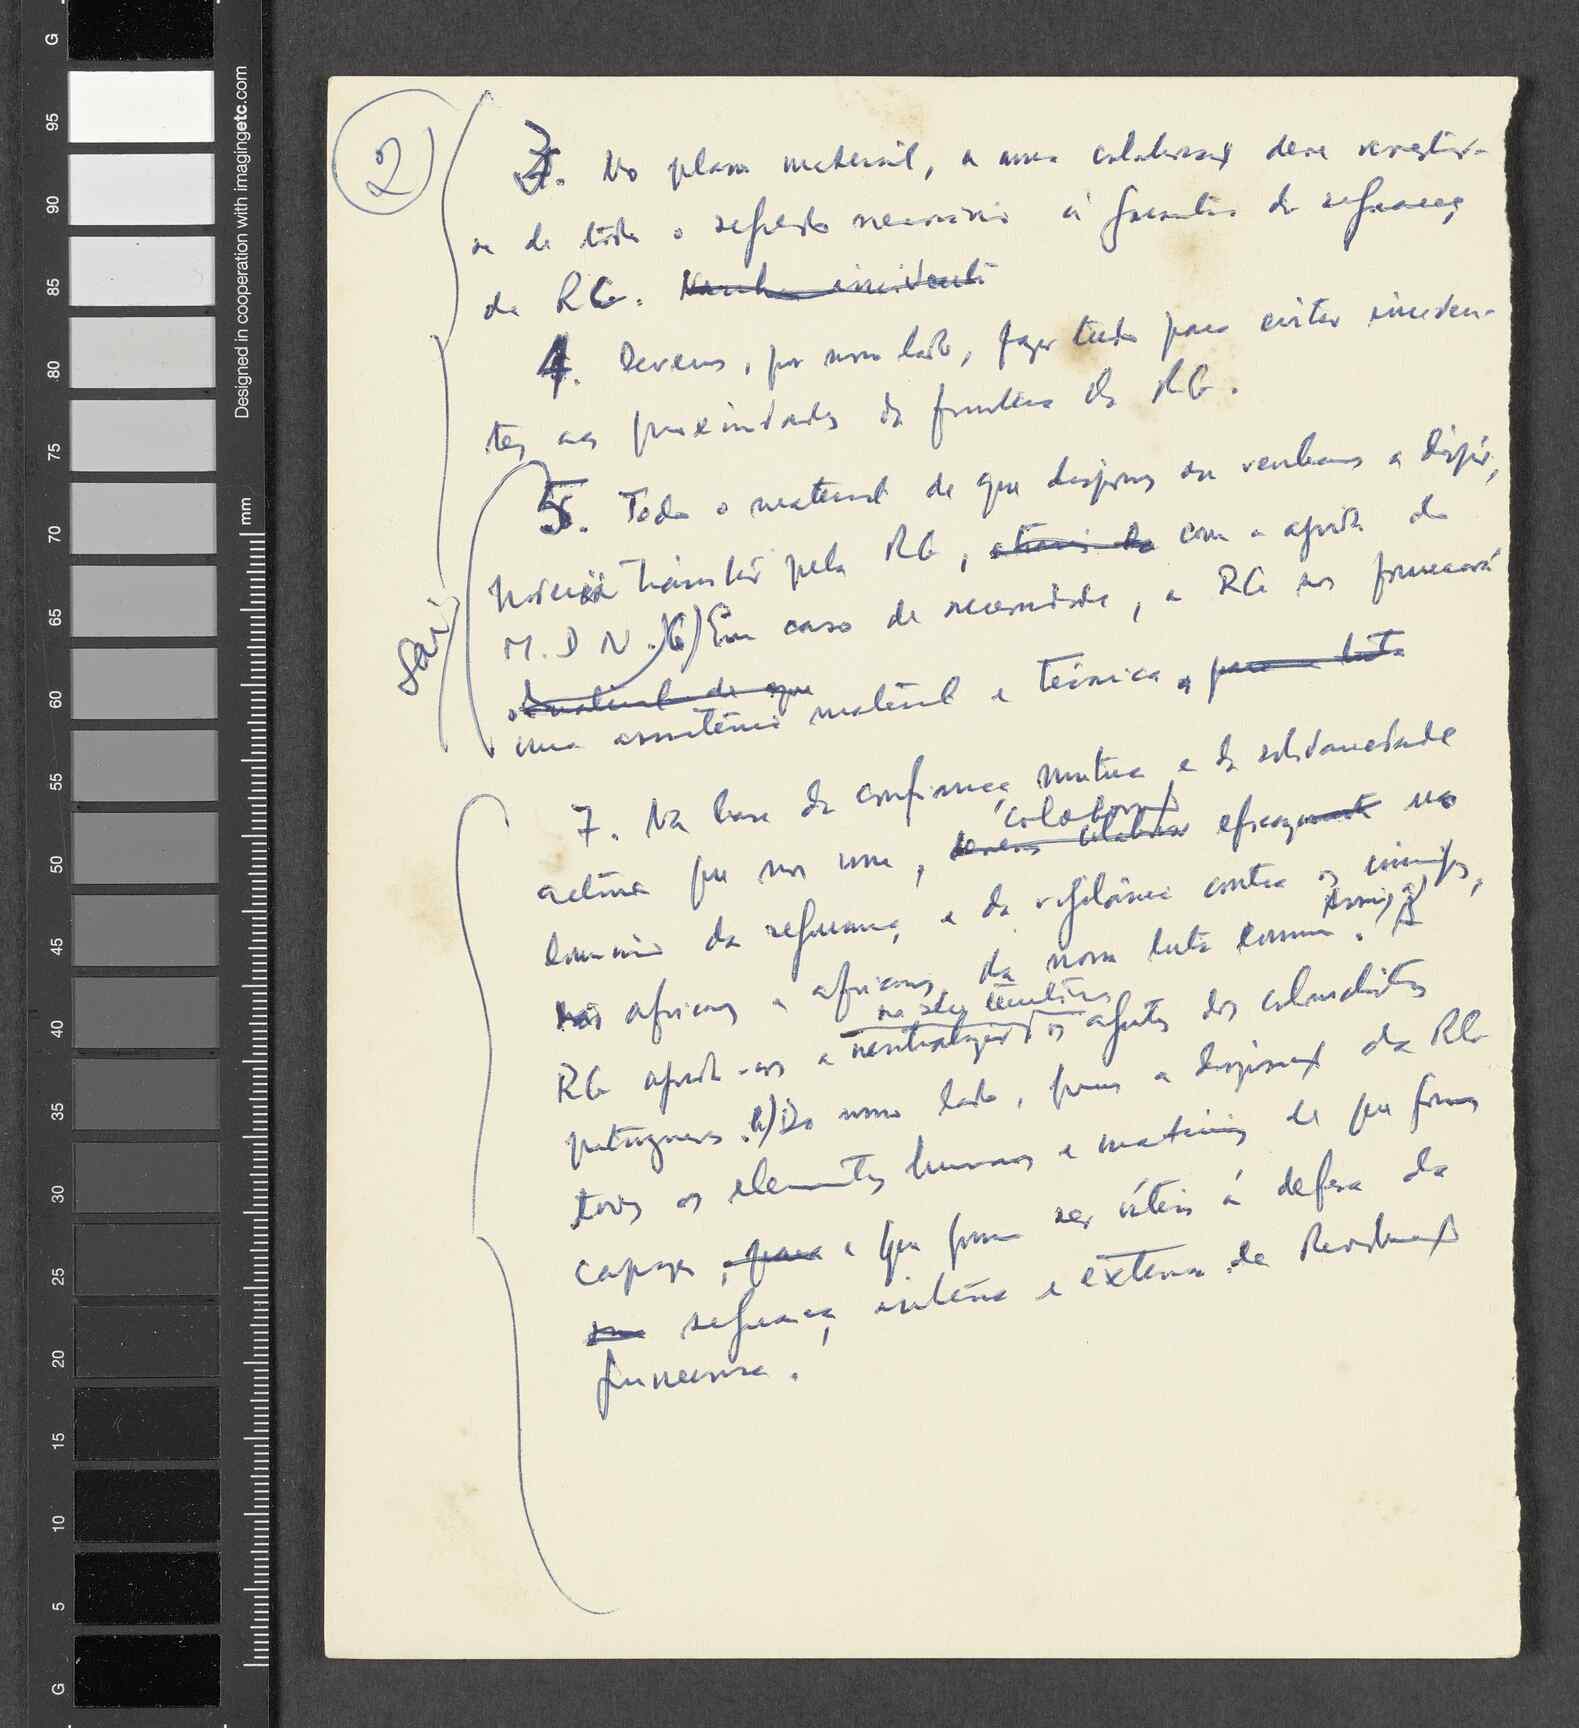 G
95
90
85
80
75
70
65
60
55
50
45
40
35
30
25
20
15
10
5
G
Designed in cooperation with imagingetc.com
mm
2
Sai
3. No plano material, a nossa colaboração deve revestir-
se de todo o segredo necessário à garantia da segurança
da RG. Nenhum incidente
4. Devemos, por nosso lado, fazer tudo para evitar inciden-
tes nas proximidades da fronteira da RG.
5. Todo o material de que dispomos ou venhamos a dispôr,
transitar pela RG, através do com o apoio do
M. D N. 6) Em caso de necessidade, a RG nos fornecerá
o material de que
uma assistência material e técnica, para a luta
7. Na base da confiança mútua e da solidariedade
activa que nos une, devemos colaborar colaboração eficazmente no
domínio da segurança e da vigilância contra os inimigos,
africanos e africanos, da nossa luta comum. A
RG apoia-nos a neutralizar os agentes dos colonialistas
portugueses. b) Do nosso lado, pomos a disposição da RG
todos os elementos humanos e materiais de que formos
capazes, para e que possam ser úteis à defesa da
sua segurança interna e externa da Revolução
Guineense.